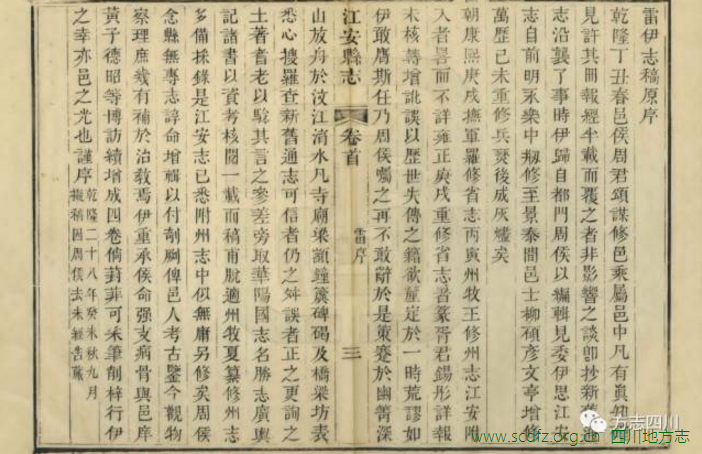 雷伊志稿原序
乾隆丁丑春邑侯周君頌謀修邑乘屬邑中凡有真知
見許其冊報經半載而覆之者非影響之談卽抄新舊
志沿襲了事時伊歸自都門周侯以編輯見委伊思江安
志自前明永樂中剏修至景泰間邑士柳碩彥文亭增修
萬歷己未重修兵燹後成灰燼矣
朝康熙庚戌撫軍羅修省志丙寅州牧王修州志江安附
入者畧而不詳雍正庚戌重修省志者纂胥君錫彤詳報
未核等增訛誤以歷世失傳之籍欲釐定於一時荒謬如
伊敢膺斯任乃周侯囑之再不敢辭於是策蹇於幽菁深
雷序
江安縣志
卷首
三
山放舟於汶江淯水凡寺廟梁額鐘簴碑碣及橋梁坊表
悉心搜羅查新舊通志可信者仍之舛誤者正之更詢之
土著耆老以騐其言之參差旁取華陽國志名勝志廣輿
記諸書以資考核閱一載而稿甫脫適州牧夏纂修州志
多備採錄是江安志已悉附州志中似無庸另修矣周侯
念縣無專志諄命增輯以付剞劂俾邑人考古鑒今觀物
察理庶幾有補於治教焉伊重承侯命强支病骨與邑庠
黃子德昭等博訪續增成四卷倘葑菲可采筆削梓行伊
之幸亦邑之光也謹序
乾隆二十八年癸未秋九月
擬稿因周侯去未經告蕆
方志四川
www.scdfz.org.cn 四川地方志